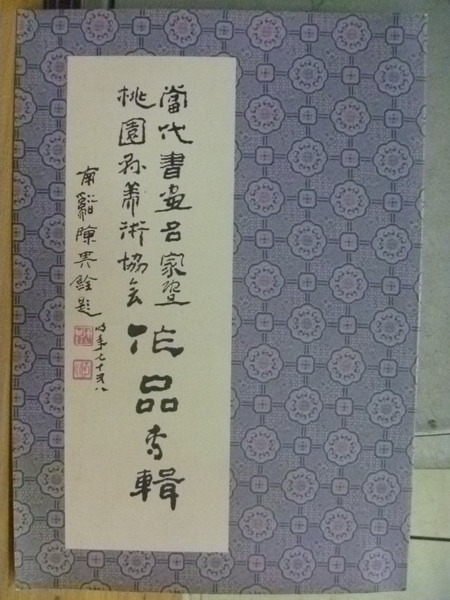 當代書畫名家暨
桃園縣美術協會
作品專輯
南谿陳其銓題
時年七十又八